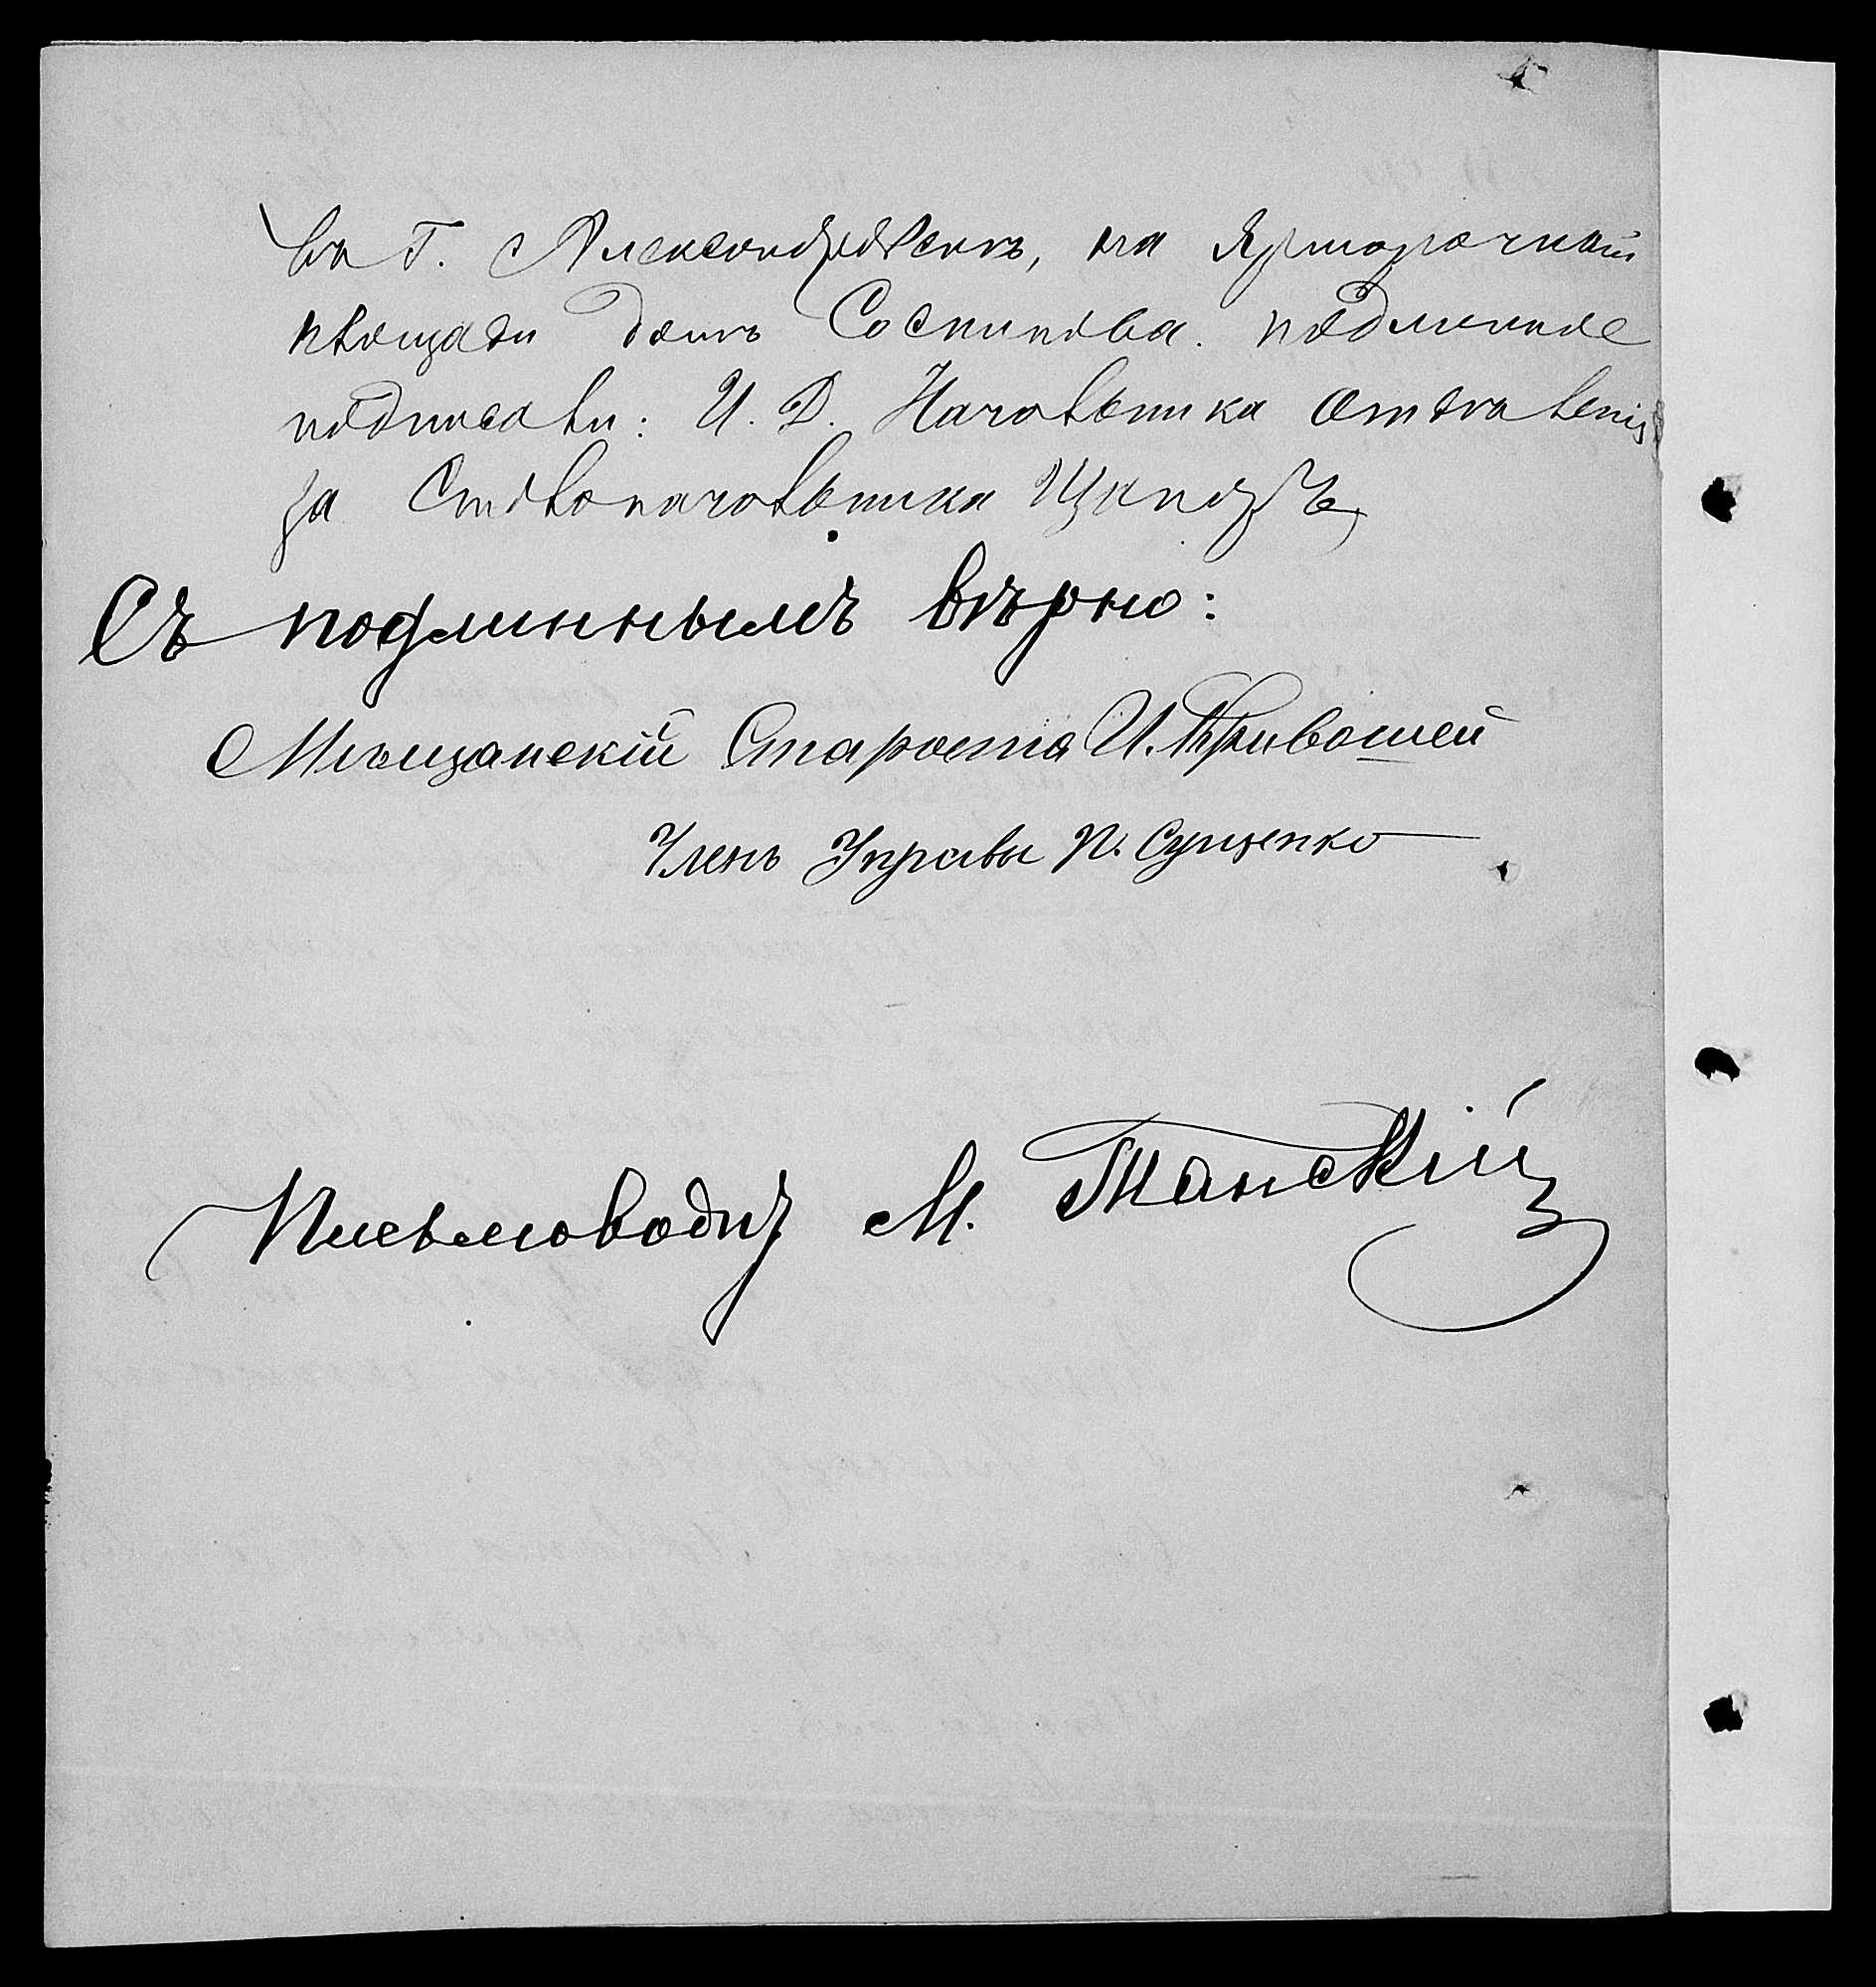 въ г. Александровскѣ, на Ярморочной
площади домъ Соснинова. подлинное
подписали: И. Д. Начальника Отдѣленія
за Столоначальника
Съ подлиннымъ вѣрно:
Мѣщанскій Староста И. Кривошей
Членъ Управы П. Сущенко
Письмоводит М. Танскій